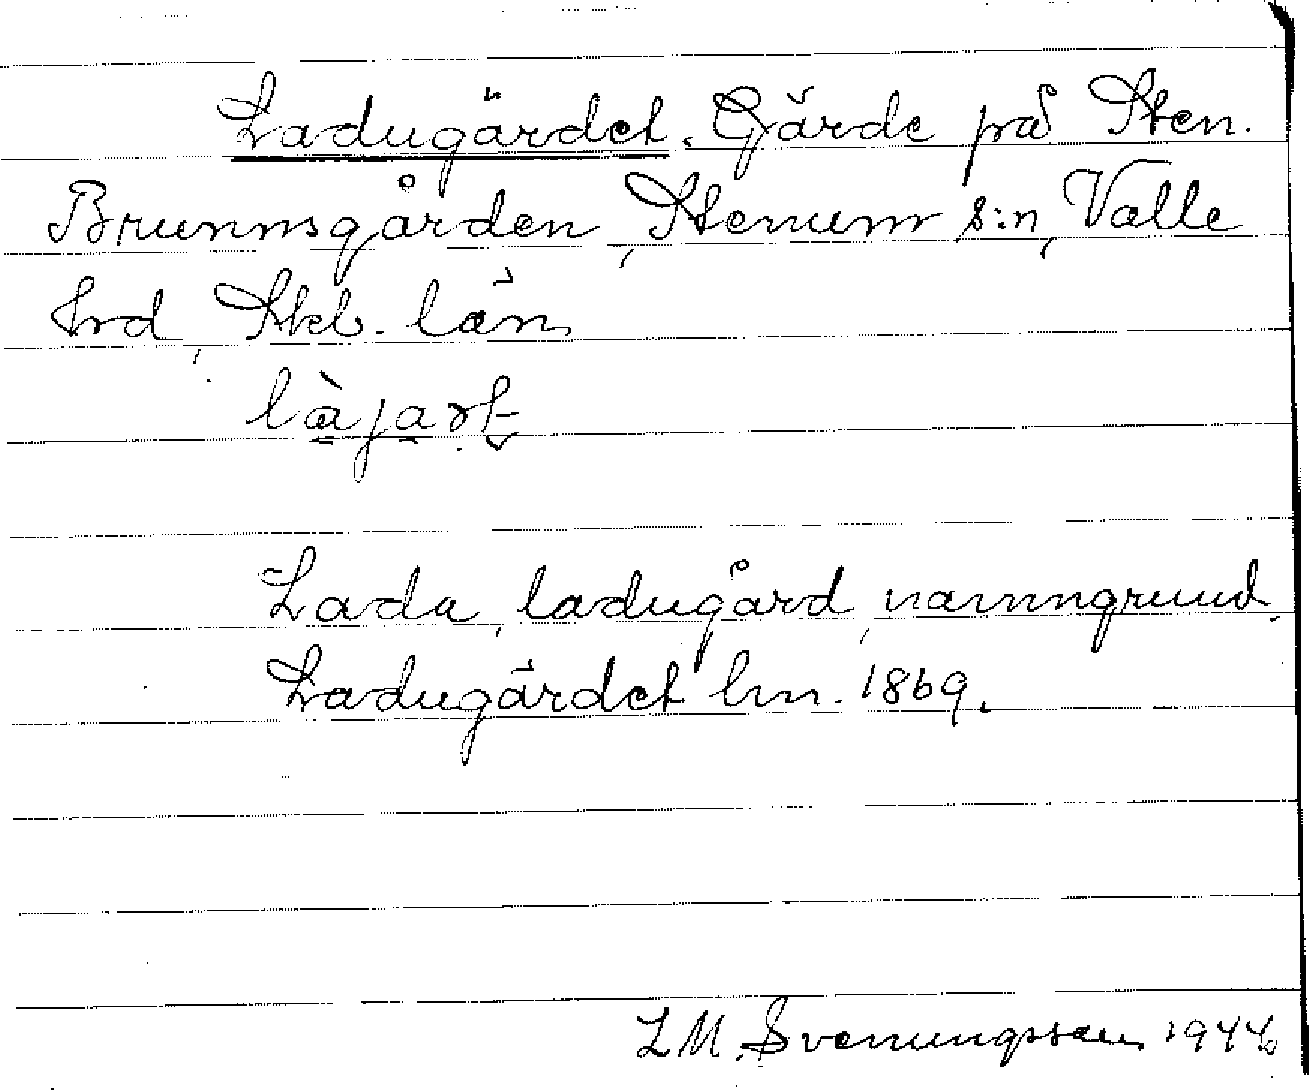 Ladugärdet. Gärde på Sten.
Brunnsgården, Stenum s:n, Valle
hrd, Skb. län
làjaṛt
Lada, ladugård, namngrund.
Ladugärdet hm. 1869.
L M. Svenungsson 1944